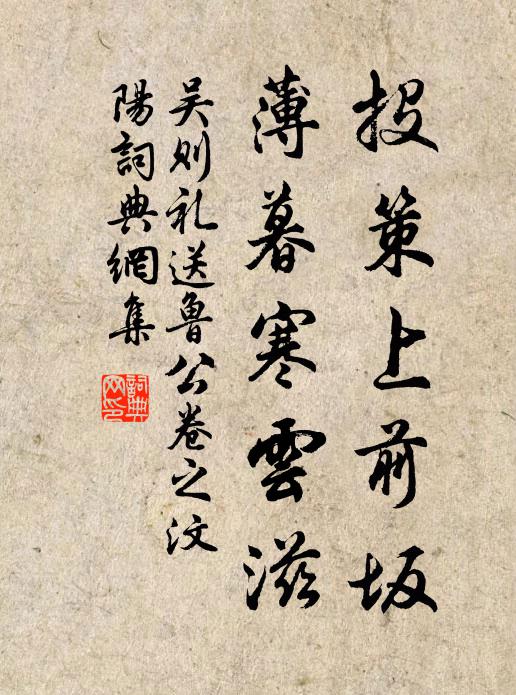 投策上前坂
薄暮寒雲滋
吴则礼送魯公卷之汶
陽詞典網集
詞典网印